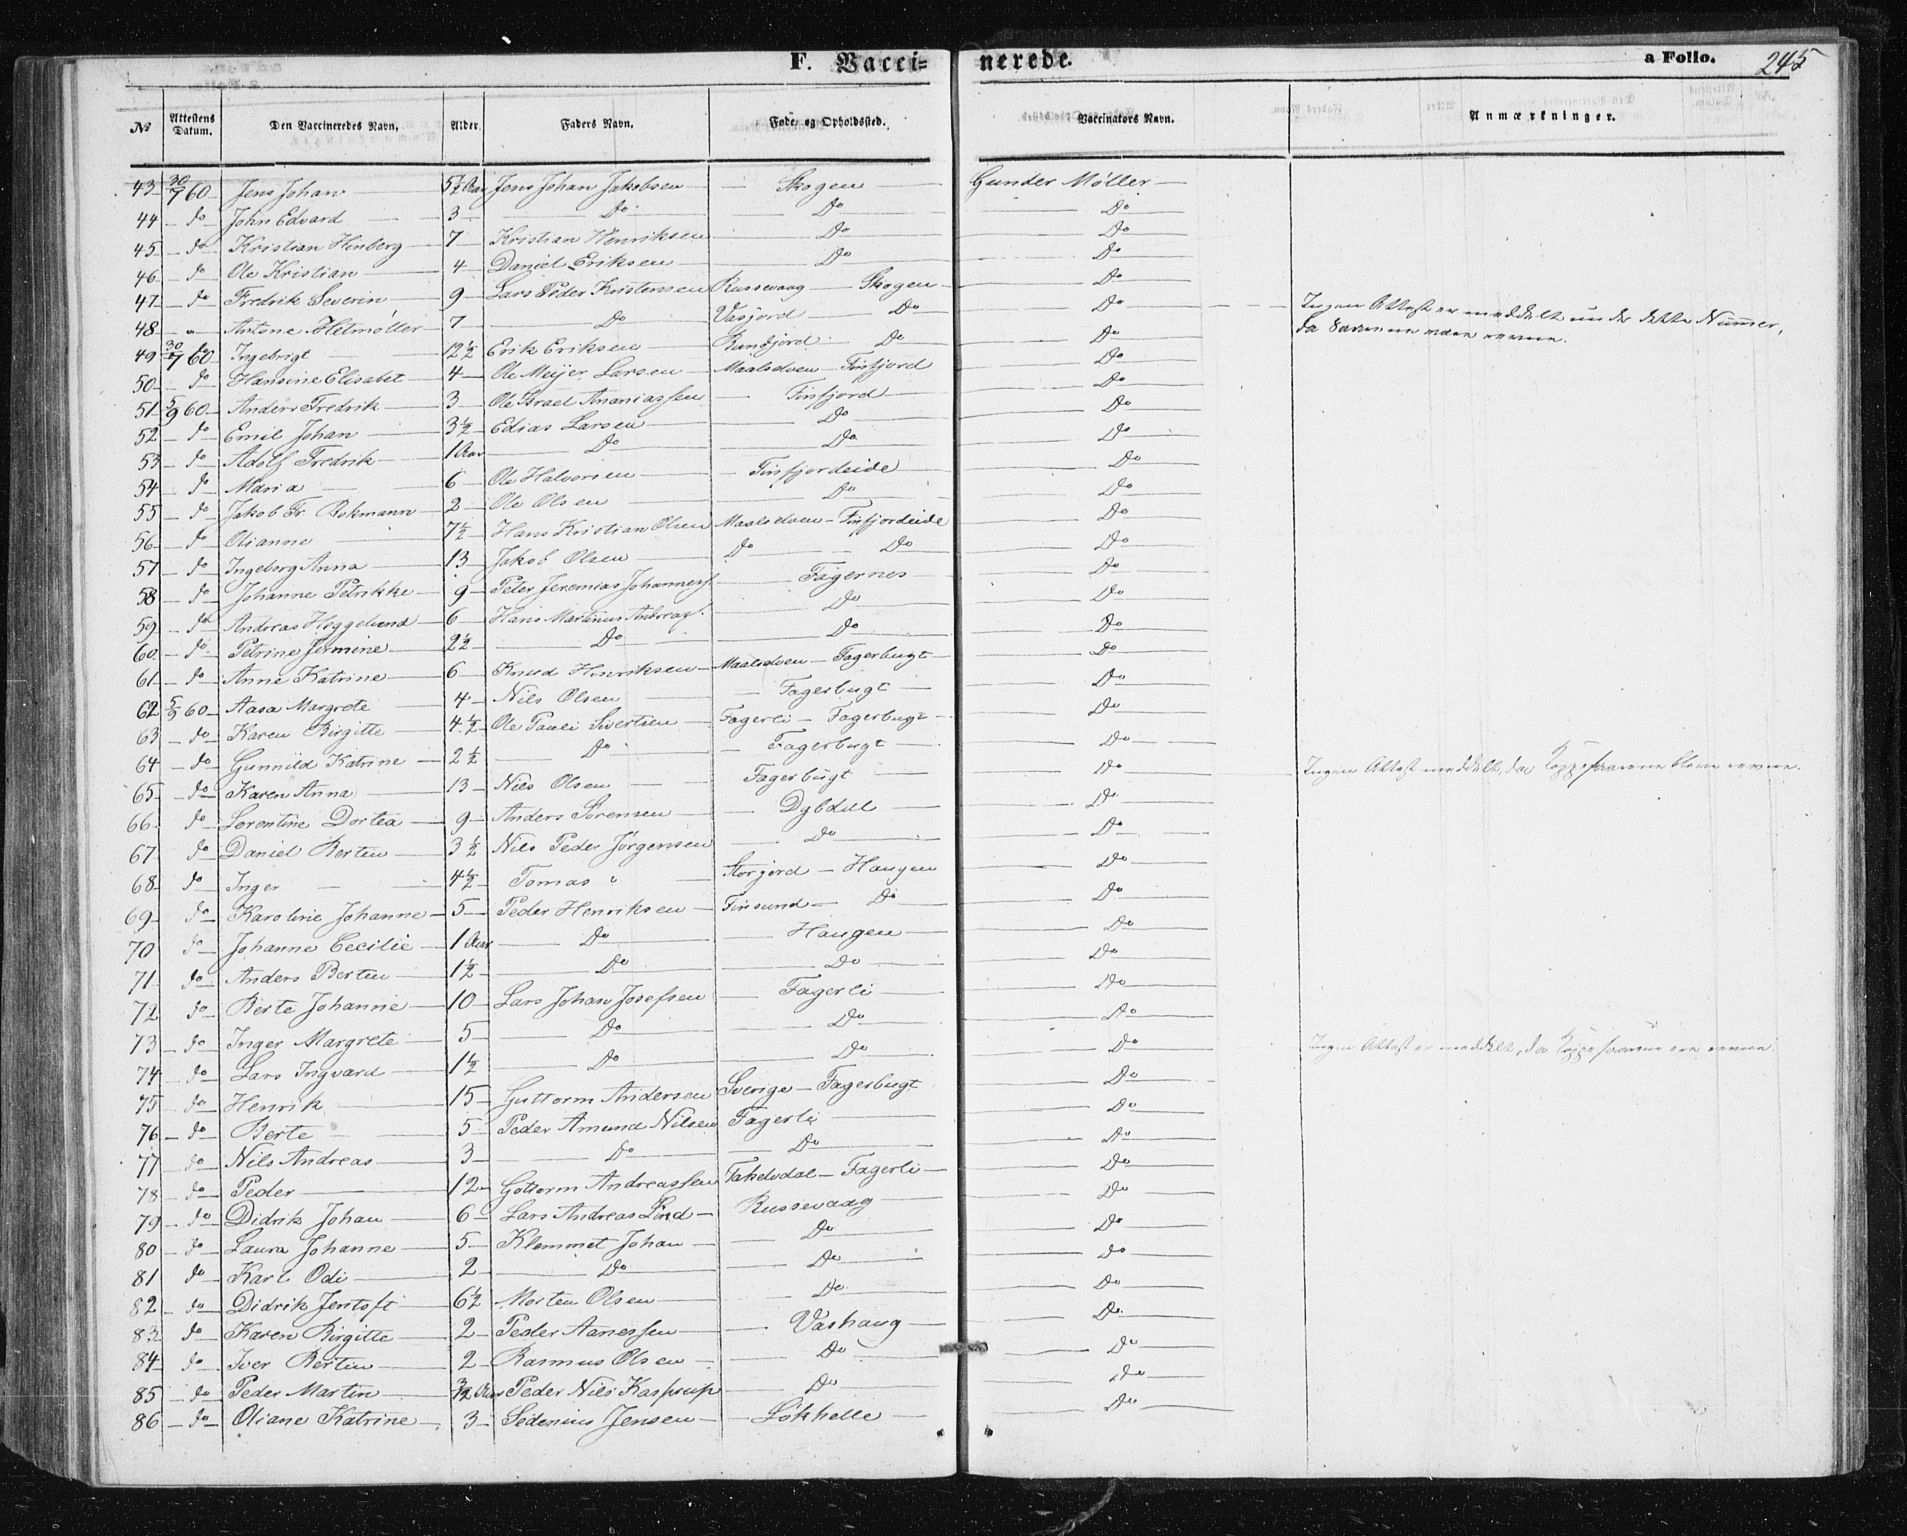 F. Vaccinerede. a Folio. 245
№ Attestens Datum. Den Vaccineredes Navn. Alder. Faders Navn. Føde- og Opholdssted. Vaccinators Navn. Anmærkninger.
43 30/7 60 Jens Johan 5½ Aar Jens Johan Jakobsen Skogen Gunder Møller
44 do John Edvard 3 Do Do Do
45 do Kristian Hinberg 7 Kristian Henriksen Do Do
46 do Ole Kristian 4 Daniel Eriksen Do Do
47 do Fredrik Severin 9 Lars Peder Kristensen Russevaag Skogen Do
48 " Antone Helmøller 7 Do Vasjord Do Do Ingen Attest er meddelt under dette Nummer,
49 30/7 60 Ingebrigt 12½ Erik Eriksen Do Do
50 do Hansine Elisabet 4 Ole Meijer Larsen Maalselven Finfjord Do
51 5/9 60 Anders Fredrik 3 Ole Israel Ananiassen Finfjord Do
52 do Emil Johan 3½ Edias Larsen Do Do
53 do Adolf Fredrik 1 Aar Do Do Do
54 do Maria 6 Ole Halvorsen Finfjordeide Do
55 do Jakob Fr. Bokmann 2 Ole Olsen Do Do
56 do Olianne 7½ Hans Kristian Olsen Maalselven Finfjordeide Do
57 do Ingeborg Anna 13 Jakob Olsen Do Do Do
58 do Johanne Petrikke 9 Peter Jeremias Johanness. Fagernes Do
59 do Andreas Heggelund 6 Hans Martinus Andreass. Do Do
60 do Petrine Jermine 2½ Do Do Do
61 do Anne Katrine 6 Knud Henriksen Maalselven Fagerbugt Do
62 5/9 60 Aasa Margrete 4 Nils Olsen Fagerbugt Do
63 do Karen Birgitte 4½ Ole Pauli Sivertsen Fagerli Fagerbugt Do
64 do Gunnild Katrine 2½ Do Fagerbugt Do
65 do Karen Anna 13 Nils Olsen Fagerbugt Do Ingen Attest meddelt, da Koppesaarene bleve revne.
66 do Lorentine Dortea 9 Anders Sørensen Dybdal Do
67 do Daniel Bertin 3½ Nils Peder Jørgensen Do Do
68 do Inger 4½ Tomas " Storjord Haugen Do
69 do Karoline Johanne 5 Peder Henriksen Finsund Do Do
70 do Johanne Cecilie 1 Aar Do Haugen Do
71 do Anders Bertin 1½ Do Do Do
72 do Berte Johanne 10 Lars Johan Josefsen Fagerli Do
73 do Inger Margrete 5 Do Do Do
74 do Lars Ingvard 1½ Do Do Do Ingen Attest er meddelt, da Koppesaarene ere revne.
75 do Henrik 15 Guttorm Andersen Sverige Fagerbugt Do
76 do Berte 5 Peder Amund Nilsen Fagerli Do
77 do Nils Andreas 3 Do Do Do
78 do Peder 12 Gottorm Andreassen Takelvdal Fagerli Do
79 do Didrik Johan 6 Lars Andreas Lind Russevaag Do
80 do Laura Johanne 5 Klemmet Johan Do Do
81 do Karl Odi 2 Do Do Do
82 do Didrik Jentoft 6½ Morten Olsen Do Do
83 do Karen Birgitte 2 Peder Aanessen Vashaug Do
84 do Iver Bertin 2 Rasmus Olsen Do Do
85 do Peder Martin Aar Peder Nils Do Do
86 do Oliane Katrine 3 Sedenius Jensen Løkhelle Do